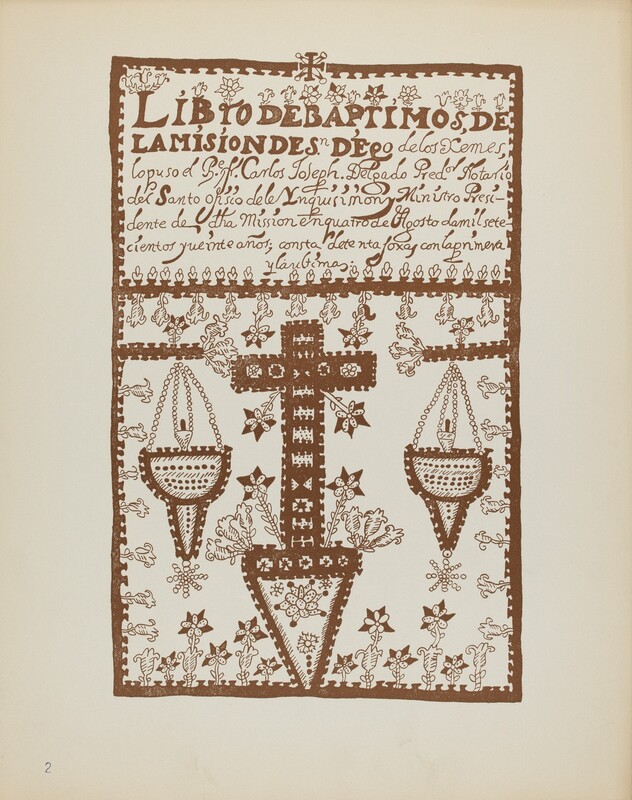 LIBrO DE BAPTIMOS, DE
LA MISION DE Sn DIEgo de los Xemes,
lo puso el Pe. ff. Carlos Joseph. Delgado Predor Notario
del Santo Ofisio de le Ynquisision y Ministro Presi-
dente de dha Mission en quatro de Agosto da mil sete-
cientos y veinte años; consta de tenta foxas con la primera
y la ultima;
2